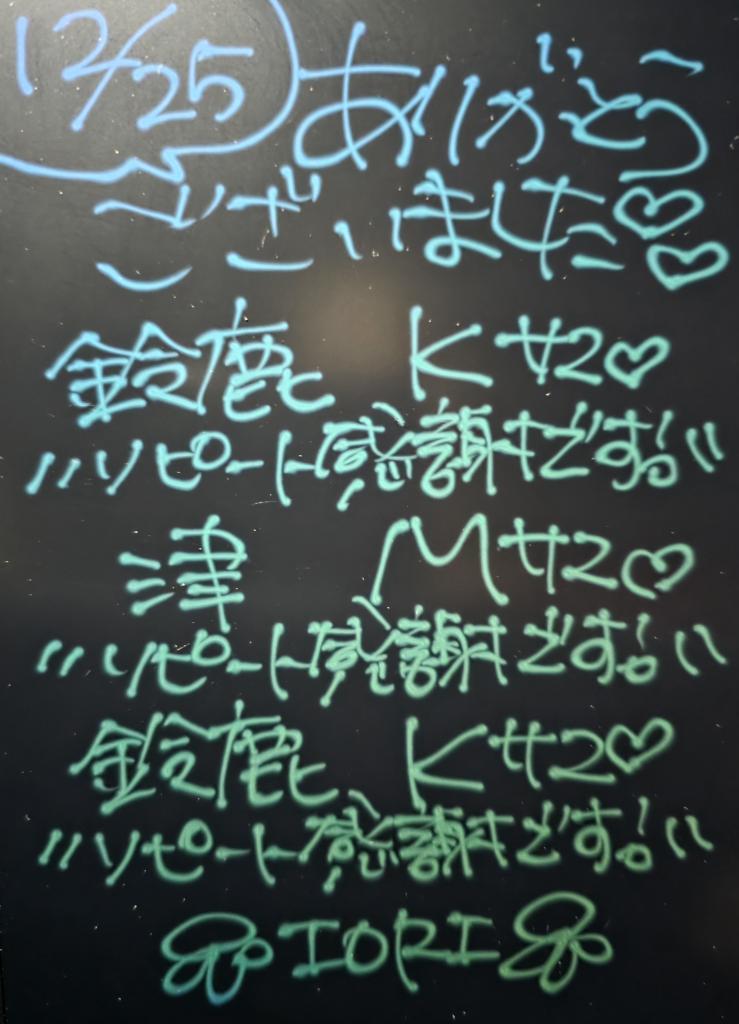 12/25 ありがとう
ございました♡♡
鈴鹿 Kサン♡
〃リピート感謝です!〃
津 Mサン♡
〃リピート感謝です!〃
鈴鹿 Kサン♡
〃リピート感謝です!〃
IORI